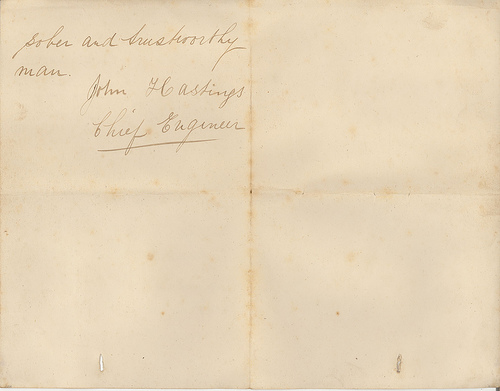 sober and trustworthy
man.
John Hastings
Chief Engineer